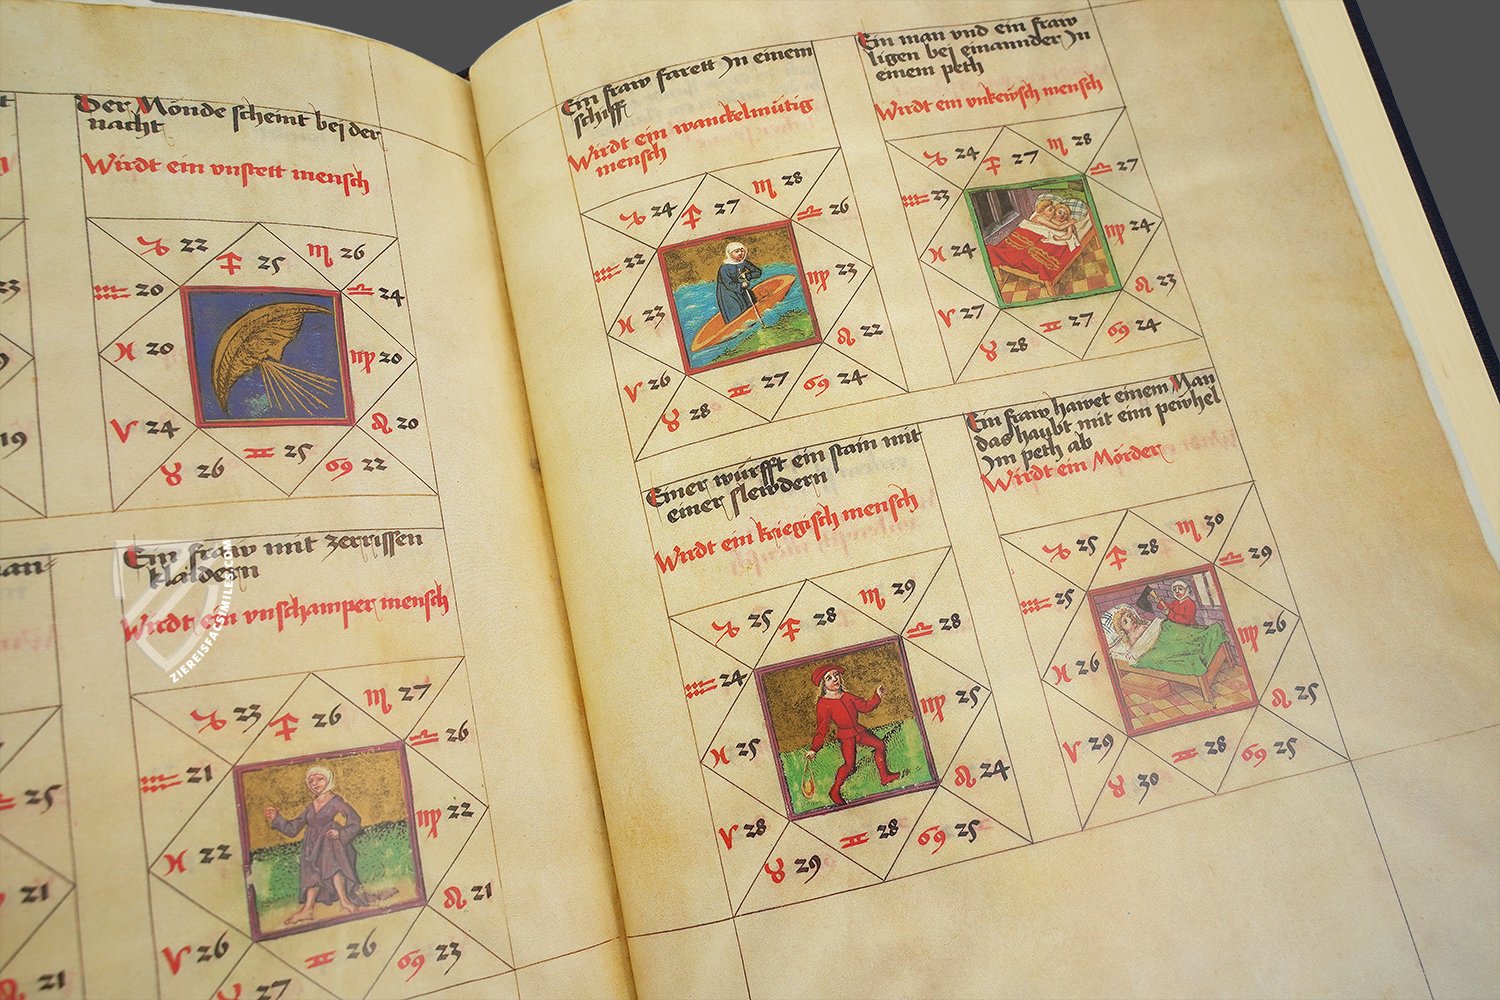 Der Mönde scheint bej der
nacht
Wirdt ein vnstett mensch
♑ 22 ♐ 25 ♏ 26
♒ 20 ♎ 24
♓ 20 ♍ 20
♈ 24 ♌ 20
♉ 26 ♊ 25 ♋ 22
Ein fraw mit zerrissen
klaidern
Wirdt ein vnschamper mensch
♑ 23 ♐ 26 ♏ 27
♒ 21 ♎ 26
♓ 22 ♍ 22
♈ 26 ♌ 21
♉ 27 ♊ 26 ♋ 23
25
21
21
19
ZIEREISFACSIMILES.COM
Ein fraw farett Jn einem
schiff
Wirdt ein wanckelmütig
mensch
♑ 24 ♐ 27 ♏ 28
♒ 22 ♎ 26
♓ 23 ♍ 23
♈ 26 ♌ 22
♉ 28 ♊ 27 ♋ 24
Ein man vnd ein fraw
ligen bej einannder Jn
einem peth
Wirdt ein vnkewsch mensch
♑ 24 ♐ 27 ♏ 28
♒ 23 ♎ 27
♓ 24 ♍ 24
♈ 27 ♌ 23
♉ 28 ♊ 27 ♋ 24
Einer würfft ein stain mit
einer slewdern
Wirdt ein kriegisch mensch
♑ 25 ♐ 28 ♏ 29
♒ 24 ♎ 28
♓ 25 ♍ 25
♈ 28 ♌ 24
♉ 29 ♊ 28 ♋ 25
Ein fraw hawet einem Man
das haubt mit einn peichel
Jm peth ab
Wirdt ein Mörder
♑ 25 ♐ 28 ♏ 30
♒ 25 ♎ 29
♓ 26 ♍ 26
♈ 29 ♌ 25
♉ 30 ♊ 28 ♋ 25